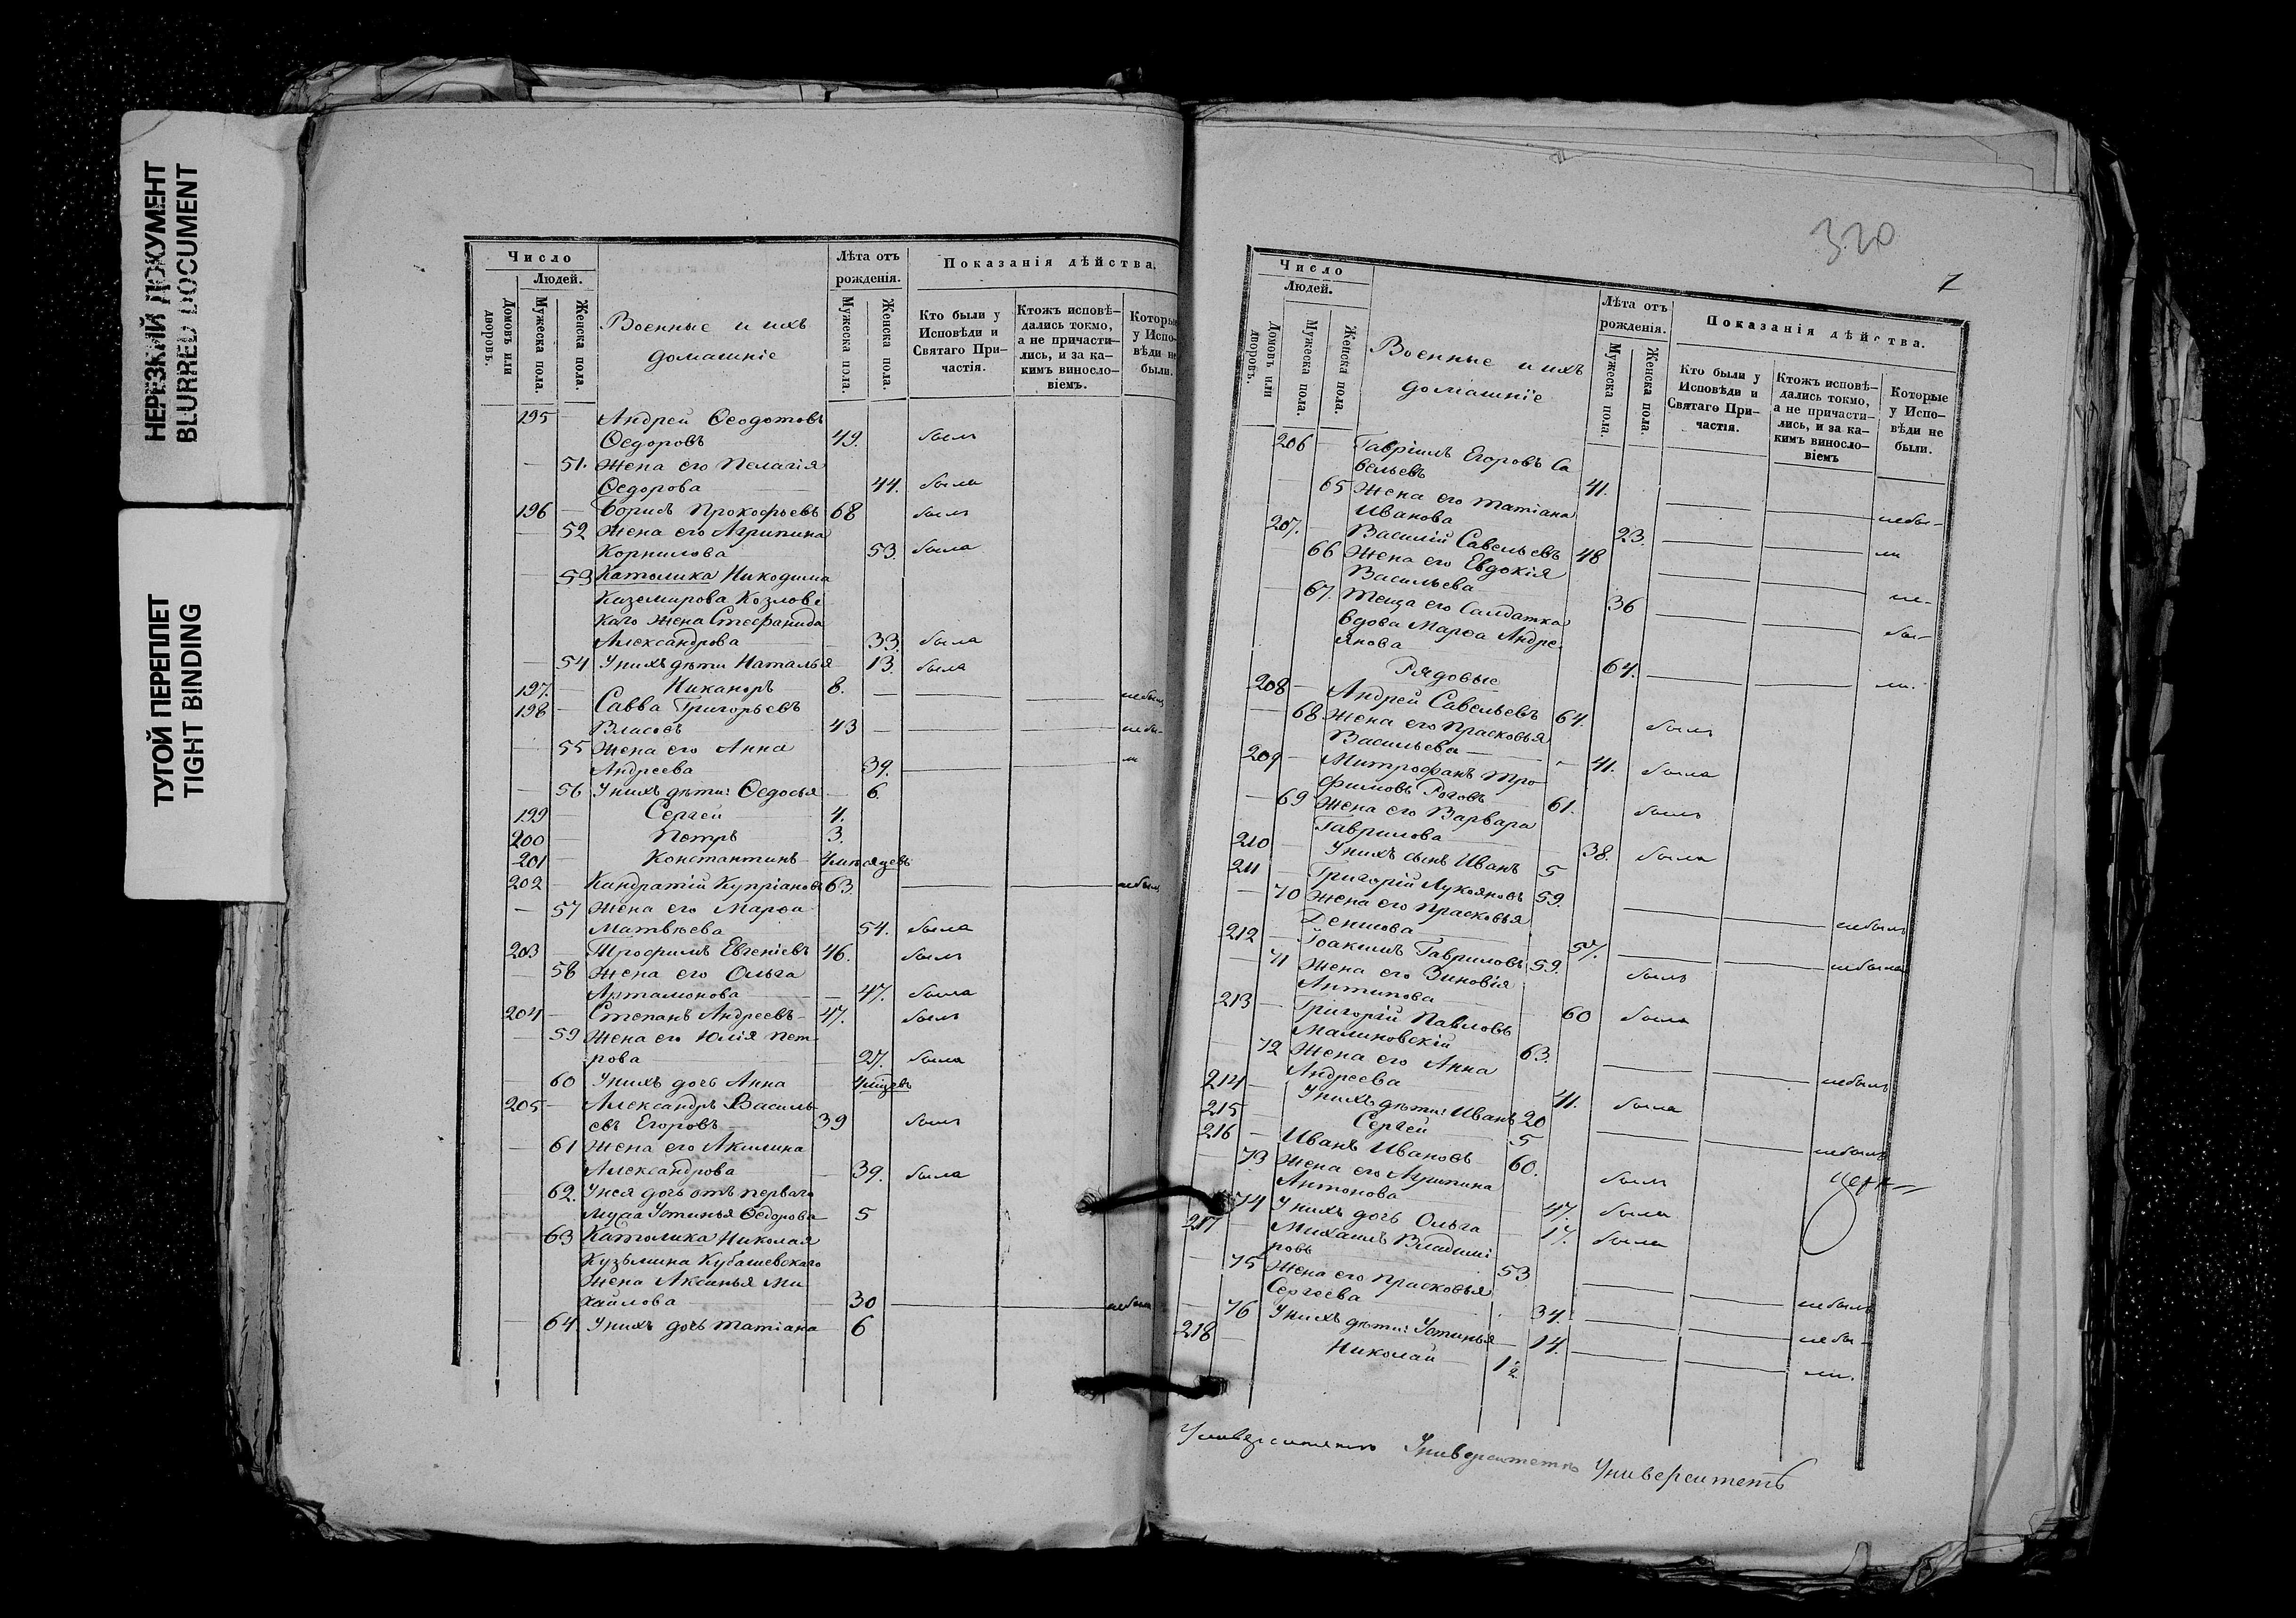 НЕРЕЗКИЙ ДОКУМЕНТ
BLURRED DOCUMENT
ТУГОЙ ПЕРЕПЛЕТ
TIGHT BINDING
Число
Людей.
Домовъ или дворовъ.
Мужеска пола.
Женска пола.
Военные и ихъ
домашніе
Лѣта отъ
рожденія.
Мужеска пола.
Женска пола.
Показанія дѣйства.
Кто были у
Исповѣди и
Святаго При-
частія.
Ктожъ исповѣ-
дались токмо,
а не причасти-
лись, и за ка-
кимъ винosло-
віемъ.
Которые
у Испо-
вѣди не
были.
195 — Андрей Ѳеодотовъ
Ѳедоровъ 49. былъ
— 51. Жена его Пелагія
Ѳедорова 44. была
196 — Борисъ Прокофьевъ 68 былъ
— 52 Жена его Агрипина
Корнилова 53. была
— 53 Католика Никодима
Каземирова Козловс
каго жена Стефанида
Александрова 33. была
— 54 У нихъ дѣти Наталья 13. была
197. — Никаноръ 8. — небылъ
198 — Савва Григорьевъ
Власовъ 43 — небы-
— 55 Жена его Анна
Андреева 39. — ли
— 56 У нихъ дѣти: Ѳедосья — 6.
199 — Сергей 4.
200 — Петръ 3.
201 — Константинъ
202 — Кандратій Купріановъ 63. — небылъ
— 57 Жена его Марѳа
Матвѣева 54. была
203 — Трофимъ Евгеніевъ 46. былъ
— 58 Жена его Ольга
Артамонова — 47. была
204 — Степанъ Андреевъ 47. былъ
— 59 Жена его Юлія Пет
рова 27. была
— 60 У нихъ дочь Анна
205 — Александръ Василь
евъ Егоровъ 39 былъ
— 61 Жена его Акилина
Александрова 39. была
— 62. У нея дочь отъ перваго
мужа Устинья Ѳедорова 5
— 63 Католика Николая
Кузьмина Кубашевскаго
жена Аксинья Ми
хайлова 30 — небыла
— 64. У нихъ дочь Татіана 6
320
7
Число
Людей.
Домовъ или дворовъ.
Мужеска пола.
Женска пола.
Военные и ихъ
домашніе
Лѣта отъ
рожденія.
Мужеска пола.
Женска пола.
Показанія дѣйства.
Кто были у
Исповѣди и
Святаго При-
частія.
Ктожъ исповѣ-
дались токмо,
а не причасти-
лись, и за ка-
кимъ винosло-
віемъ
Которые
у Испо-
вѣди не
были.
206 — Гавріилъ Егоровъ Са
вельевъ 41. — небы-
— 65 Жена его Татіана
Иванова 23. — ли
207. — Василій Савельевъ 48 — не-
— 66 Жена его Евдокія
Васильева 36 — бы-
— 67. Теща его Салдатка
вдова Марѳа Андре
янова 64. — ли.
Рядовые
208 — Андрей Савельевъ 64. былъ
— 68 Жена его Прасковья
Васильева — 41. была
209 — Митрофанъ Тро
фимовъ Роговъ 61. былъ
— 69 Жена его Варвара
Гаврилова 38. была
210 — У нихъ сынъ Иванъ 5
211 — Григорій Лукояновъ 59. — небылъ
— 70 Жена его Прасковья
Денисова 57. — небыла
212 — Іоакимъ Гавриловъ 59. былъ
— 71 Жена его Зиновія
Антипова 60 была
213 — Григорій Павловъ
Малиновскій 63. — небылъ
— 72 Жена его Анна
Андреева 41. была
214 — У нихъ дѣти: Иванъ 20 — небылъ
215 — Сергей 5
216 — Иванъ Ивановъ 60. былъ
— 73 Жена его Агрипина
Антонова 47. была
— 74 У нихъ дочь Ольга — 17. была
217 — Михаилъ Владимі
ровъ 53 — небылъ
— 75 Жена его Прасковья
Сергеева 34. — небы-
— 76 У нихъ дѣти: Устинья — 14. — ли.
218 — Николай 1½
Университетъ Университетъ Университетъ